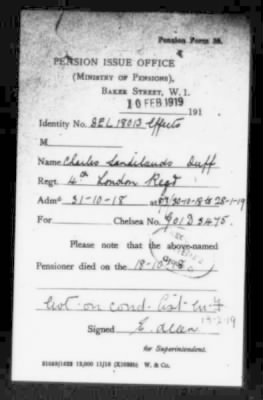 Pension Form 38.
PENSION ISSUE OFFICE
(MINISTRY OF PENSIONS),
BAKER STREET, W.1.
10 FEB 1919
191
Identity No. SEL 18013 Effects
M
Name Charles Sandilands Duff
Regt. 4th London Regt
Adm. 31-10-18 at 30-10-18 28-1-19
For Chelsea No. 901D3475.
Please note that the above-named
Pensioner died on the 18-10-98
Not on cond. list
19-2-19
Signed E. Allen
for Superintendent.
W. & Co.